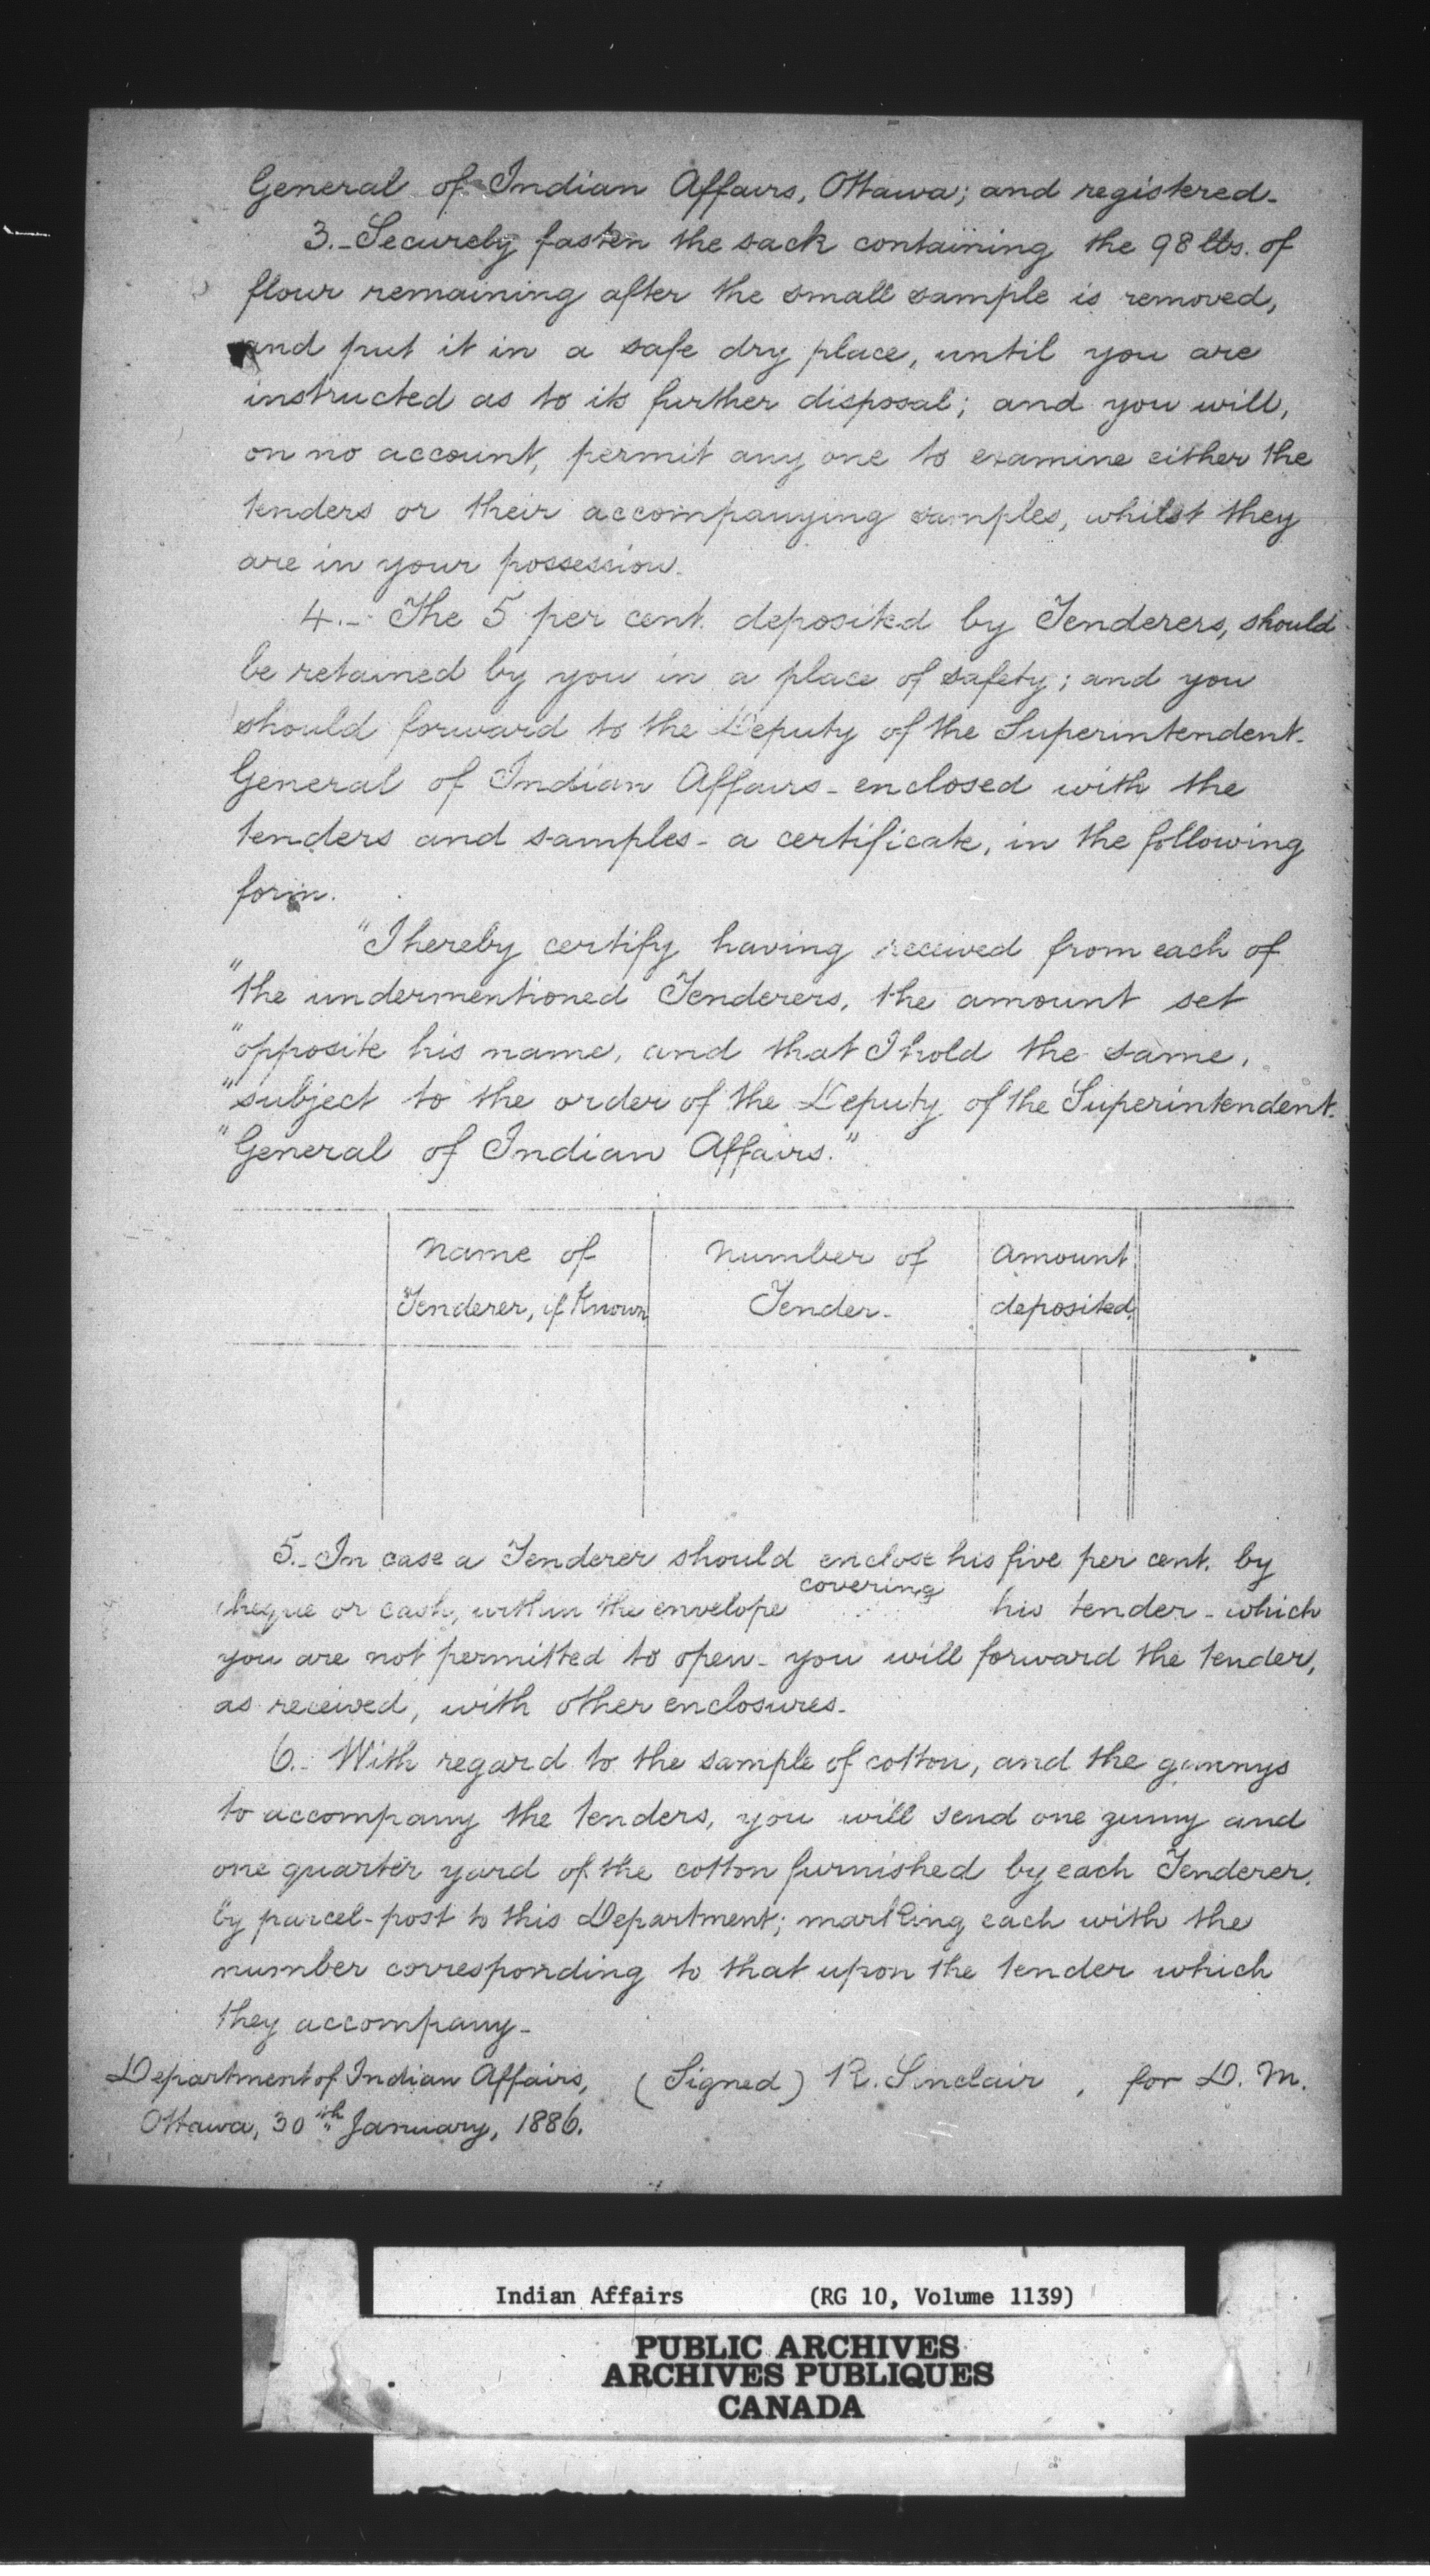 General of Indian Affairs, Ottawa; and registered.
3.- Securely fasten the sack containing the 98 lbs. of
flour remaining after the small sample is removed,
and put it in a safe dry place, until you are
instructed as to its further disposal; and you will,
on no account, permit any one to examine either the
tenders or their accompanying samples, whilst they
are in your possession.
4.- The 5 per cent. deposited by Tenderers, should
be retained by you in a place of safety; and you
should forward to the Deputy of the Superintendent-
General of Indian Affairs - enclosed with the
tenders and samples - a certificate, in the following
form.
"I hereby certify having received from each of
"the undermentioned Tenderers, the amount set
"opposite his name, and that I hold the same,
"subject to the order of the Deputy of the Superintendent-
"General of Indian Affairs."
Name of Number of Amount
Tenderer, if Known Tender. deposited.
5.- In case a Tenderer should enclose his five per cent. by
covering
cheque or cash, within the envelope his tender - which
you are not permitted to open - you will forward the tender,
as received, with other enclosures.
6.- With regard to the sample of cotton, and the gunnys
to accompany the tenders, you will send one gunny and
one quarter yard of the cotton furnished by each Tenderer,
by parcel-post to this Department; marking each with the
number corresponding to that upon the tender which
they accompany.
Department of Indian Affairs, (Signed) R. Sinclair, for D. M.
Ottawa, 30th January, 1886.
Indian Affairs (RG 10, Volume 1139)
PUBLIC ARCHIVES
ARCHIVES PUBLIQUES
CANADA